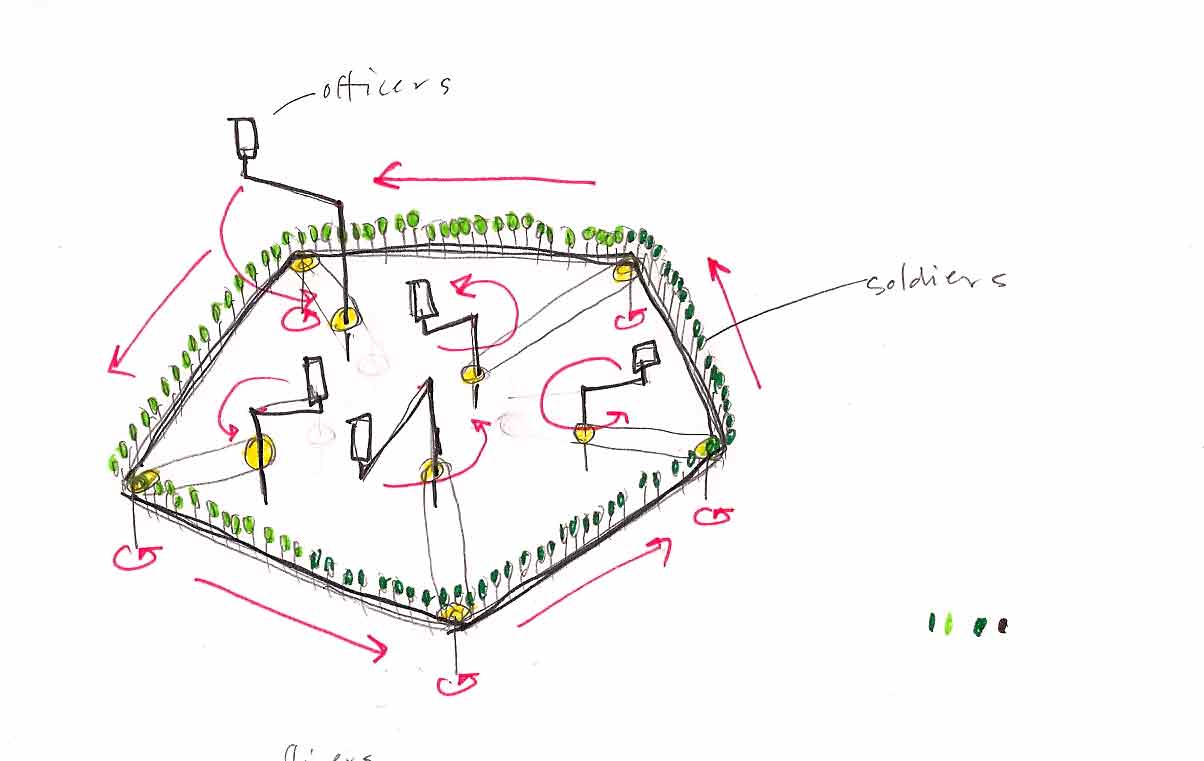 officers
soldiers